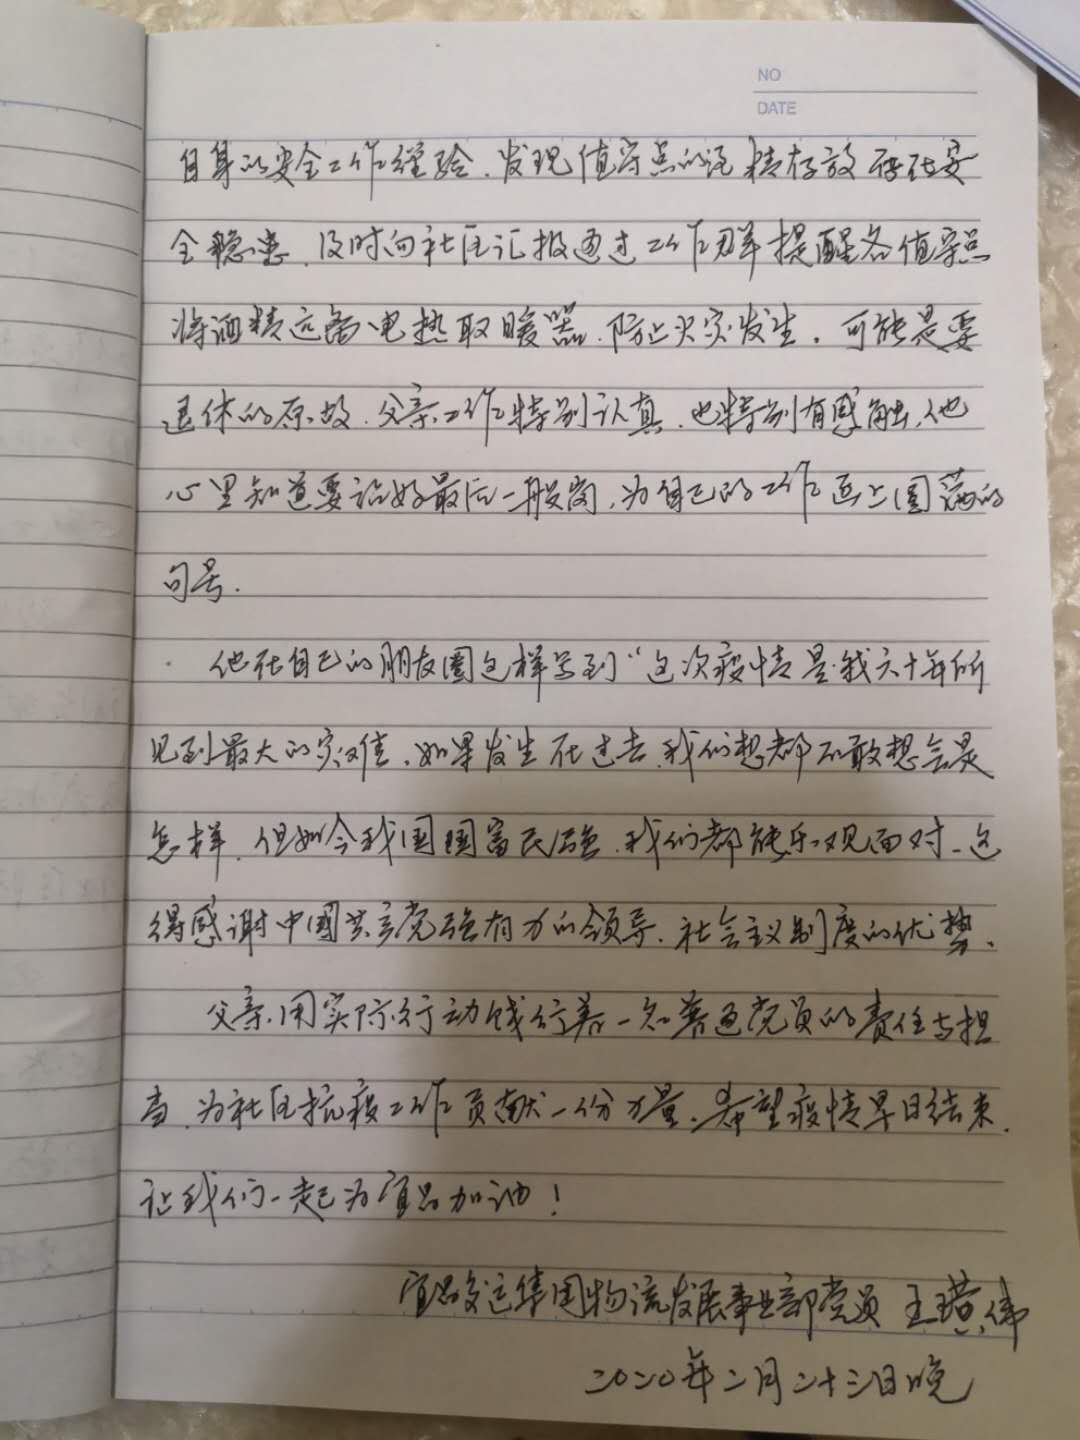 NO
DATE
自身的安全工作经验、发现值守点的酒精存放存在安
全隐患、及时向社区汇报通过工作群提醒各值守点
将酒精远离电热取暖器、防止火灾发生。可能是要
退休的原故、父亲工作特别认真、也特别有感触、他
心里知道要站好最后一般岗、为自己的工作画上圆满的
句号.
他在自己的朋友圈这样写到“这次疫情是我六十年所
见到最大的灾难、如果发生在过去、我们想都不敢想会是
怎样、但如今我国国富民强、我们都能乐观面对、这
得感谢中国共产党强有力的领导、社会主义制度的优势、
父亲用实际行动践行着一名普通党员的责任与担
当、为社区抗疫工作贡献一份力量、希望疫情早日结束、
让我们一起为宜昌加油！
宜昌交运集团物流发展事业部党员 王 伟
二0二0年二月二十三日晚